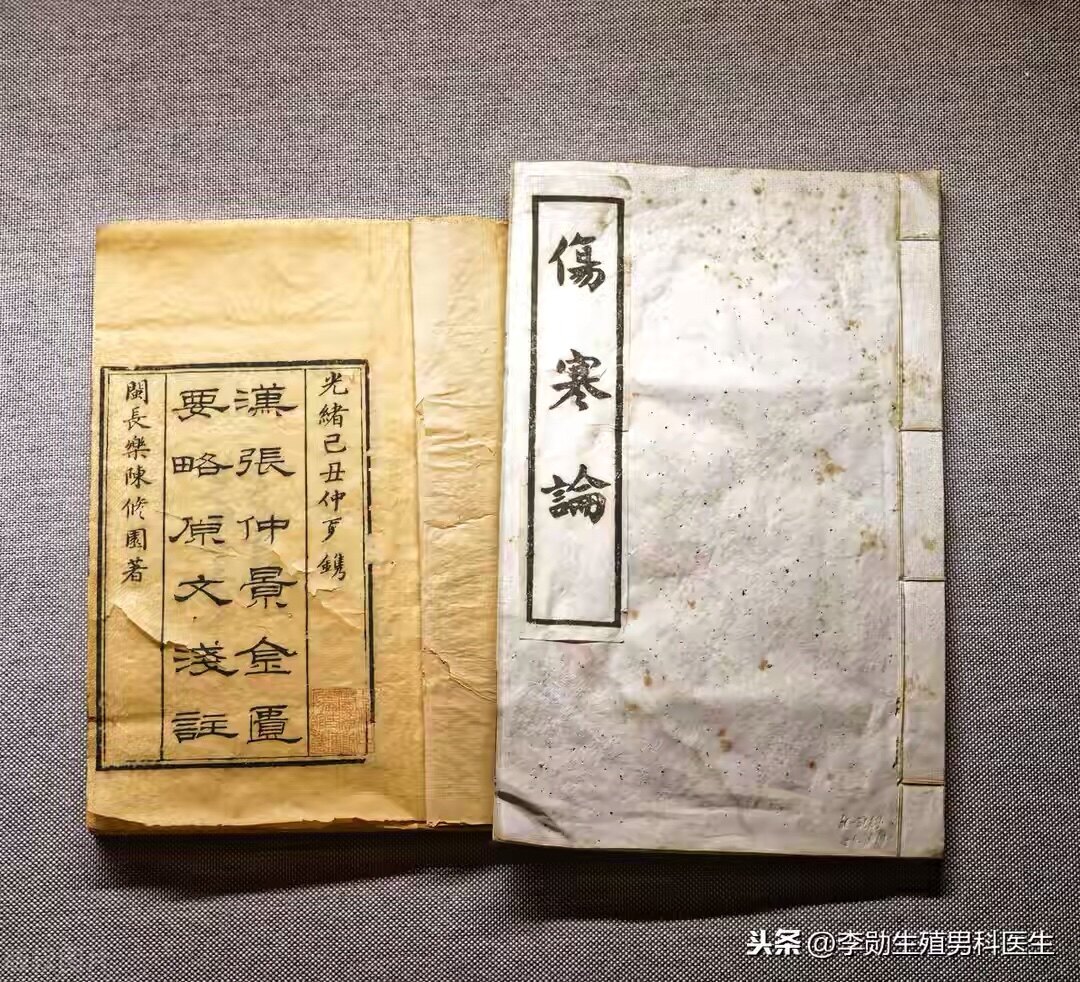 光緒己丑仲夏鐫
漢張仲景金匱
要略原文淺註
閩長樂陳修園著
傷寒論
头条@李勋生殖男科医生